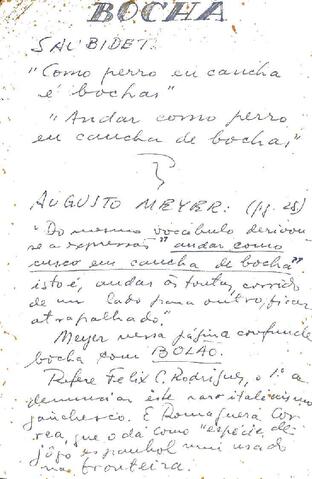 BOCHA
SAUBIDET:
"Como perro en cancha
é bochas"
"Andar como perro
en cancha de bochas"
AUGUSTO MEYER: (pg. 25)
"Do mesmo vocábulo derivou-
se a expressão "andar como
cusco em cancha de bocha"
isto é, andar às tontas, corrido
de um lado para outro, ficar
atrapalhado."
Meyer nessa página confunde
bocha com BOLÃO.
Refere Felix C. Rodrigues, o 1º a
denunciar este raro italianismo
gauchesco. E Romaguera Cor-
rea, que o dá como "espécie de
jôgo espanhol mui usado
na fronteira.